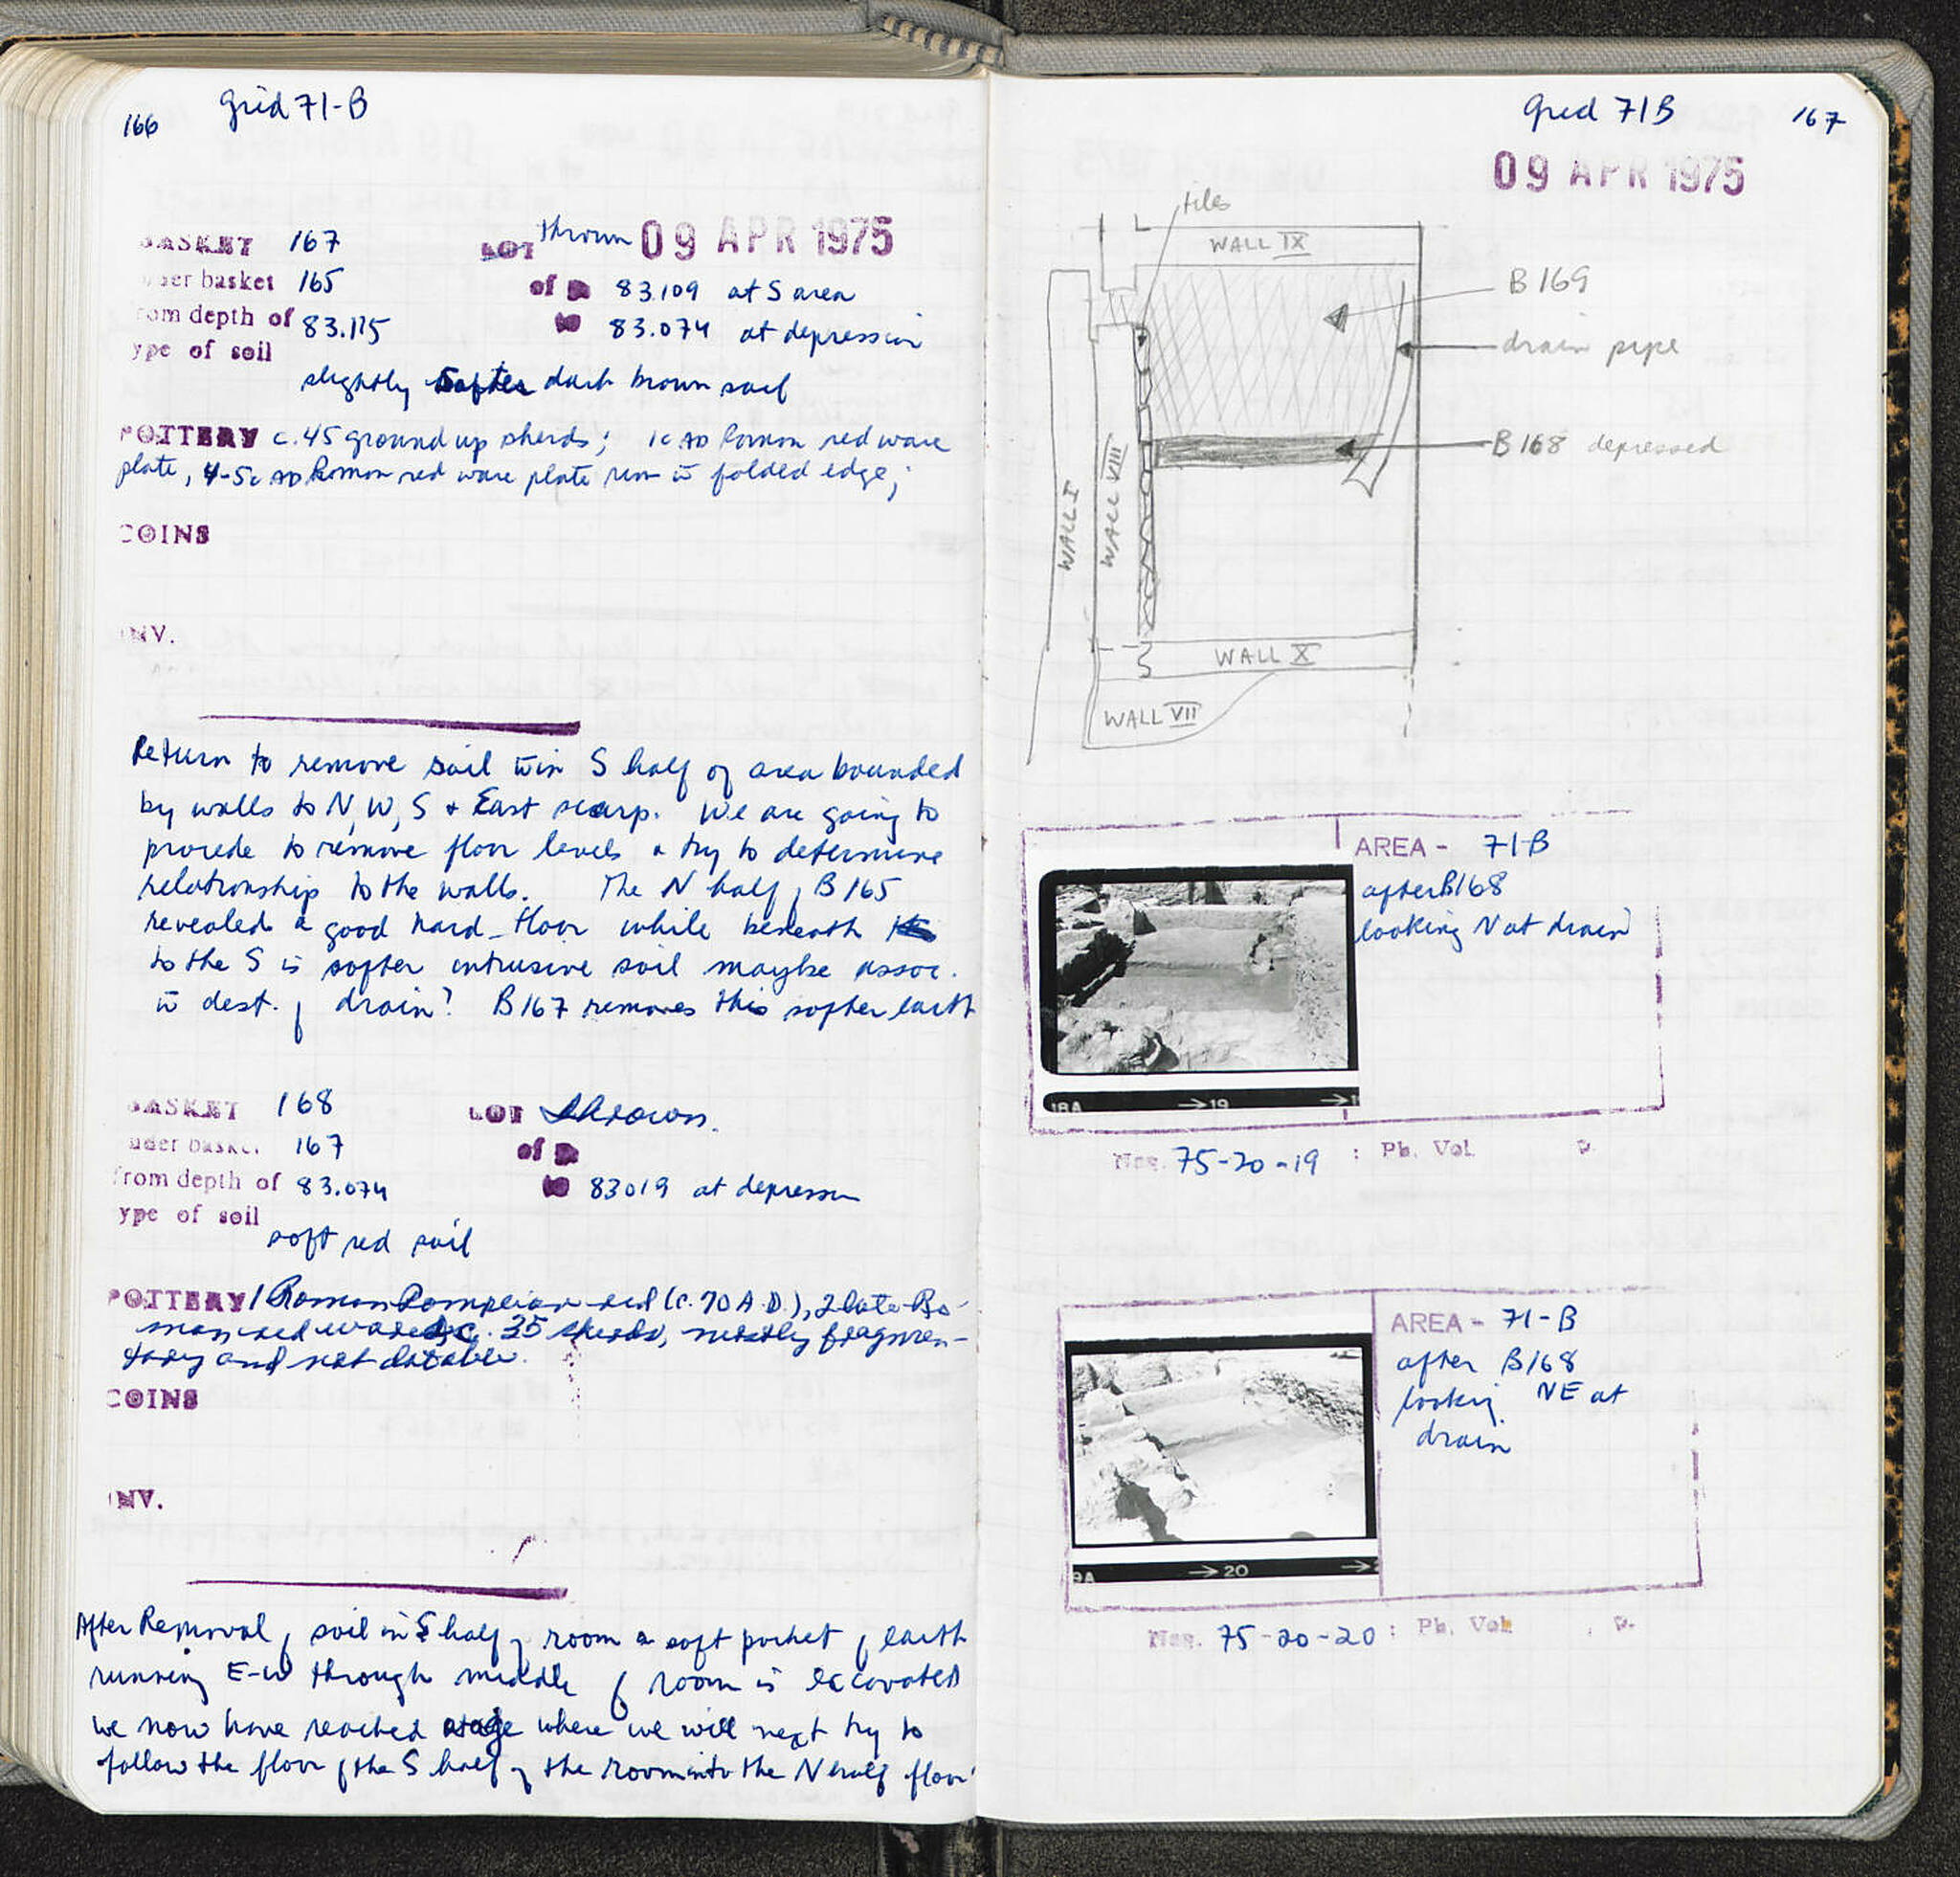 166 Grid 71-B
BASKET 167 LOT thrown 09 APR 1975
under basket 165 of 83.109 at S area
from depth of 83.175 83.074 at depression
type of soil
slightly softer dark brown soil
POTTERY c. 45 ground up sherds; 1c AD Roman red ware
plate, 4-5c AD Roman red ware plate rim w̄ folded edge;
COINS
INV.
Return to remove soil w̄in S half of area bounded
by walls to N, W, S + East scarp. We are going to
procede to remove floor levels + try to determine
relationship to the walls. The N half, B165
revealed a good hard floor while beneath
to the S is softer intrusive soil maybe assoc.
w̄ dest. of drain? B167 removes this softer earth
BASKET 168 LOT thrown.
under basket 167 of
from depth of 83.074 83019 at depression
type of soil
soft red soil
POTTERY 1 Roman Pompeian red (c. 70 A.D.), 2 late Ro-
man red wares, c. 35 sherds, mostly fragmen-
tary and not datable.
COINS
INV.
After Removal of soil in S half of room a soft pocket of earth
running E-W through middle of room is excavated
we now have reached stage where we will next try to
follow the floor of the S half of the room into the N half floor
Grid 71B 167
09 APR 1975
tiles
WALL IX
B 169
drain pipe
B 168 depressed
WALL I
WALL VIII
WALL X
WALL VII
AREA - 71-B
after B168
looking N at drain
18A →19 →1
Neg. 75-20-19 : Ph. Vol. p.
AREA - 71-B
after B168
looking NE at
drain
9A →20 →2
Neg. 75-20-20 : Ph. Vol. p.